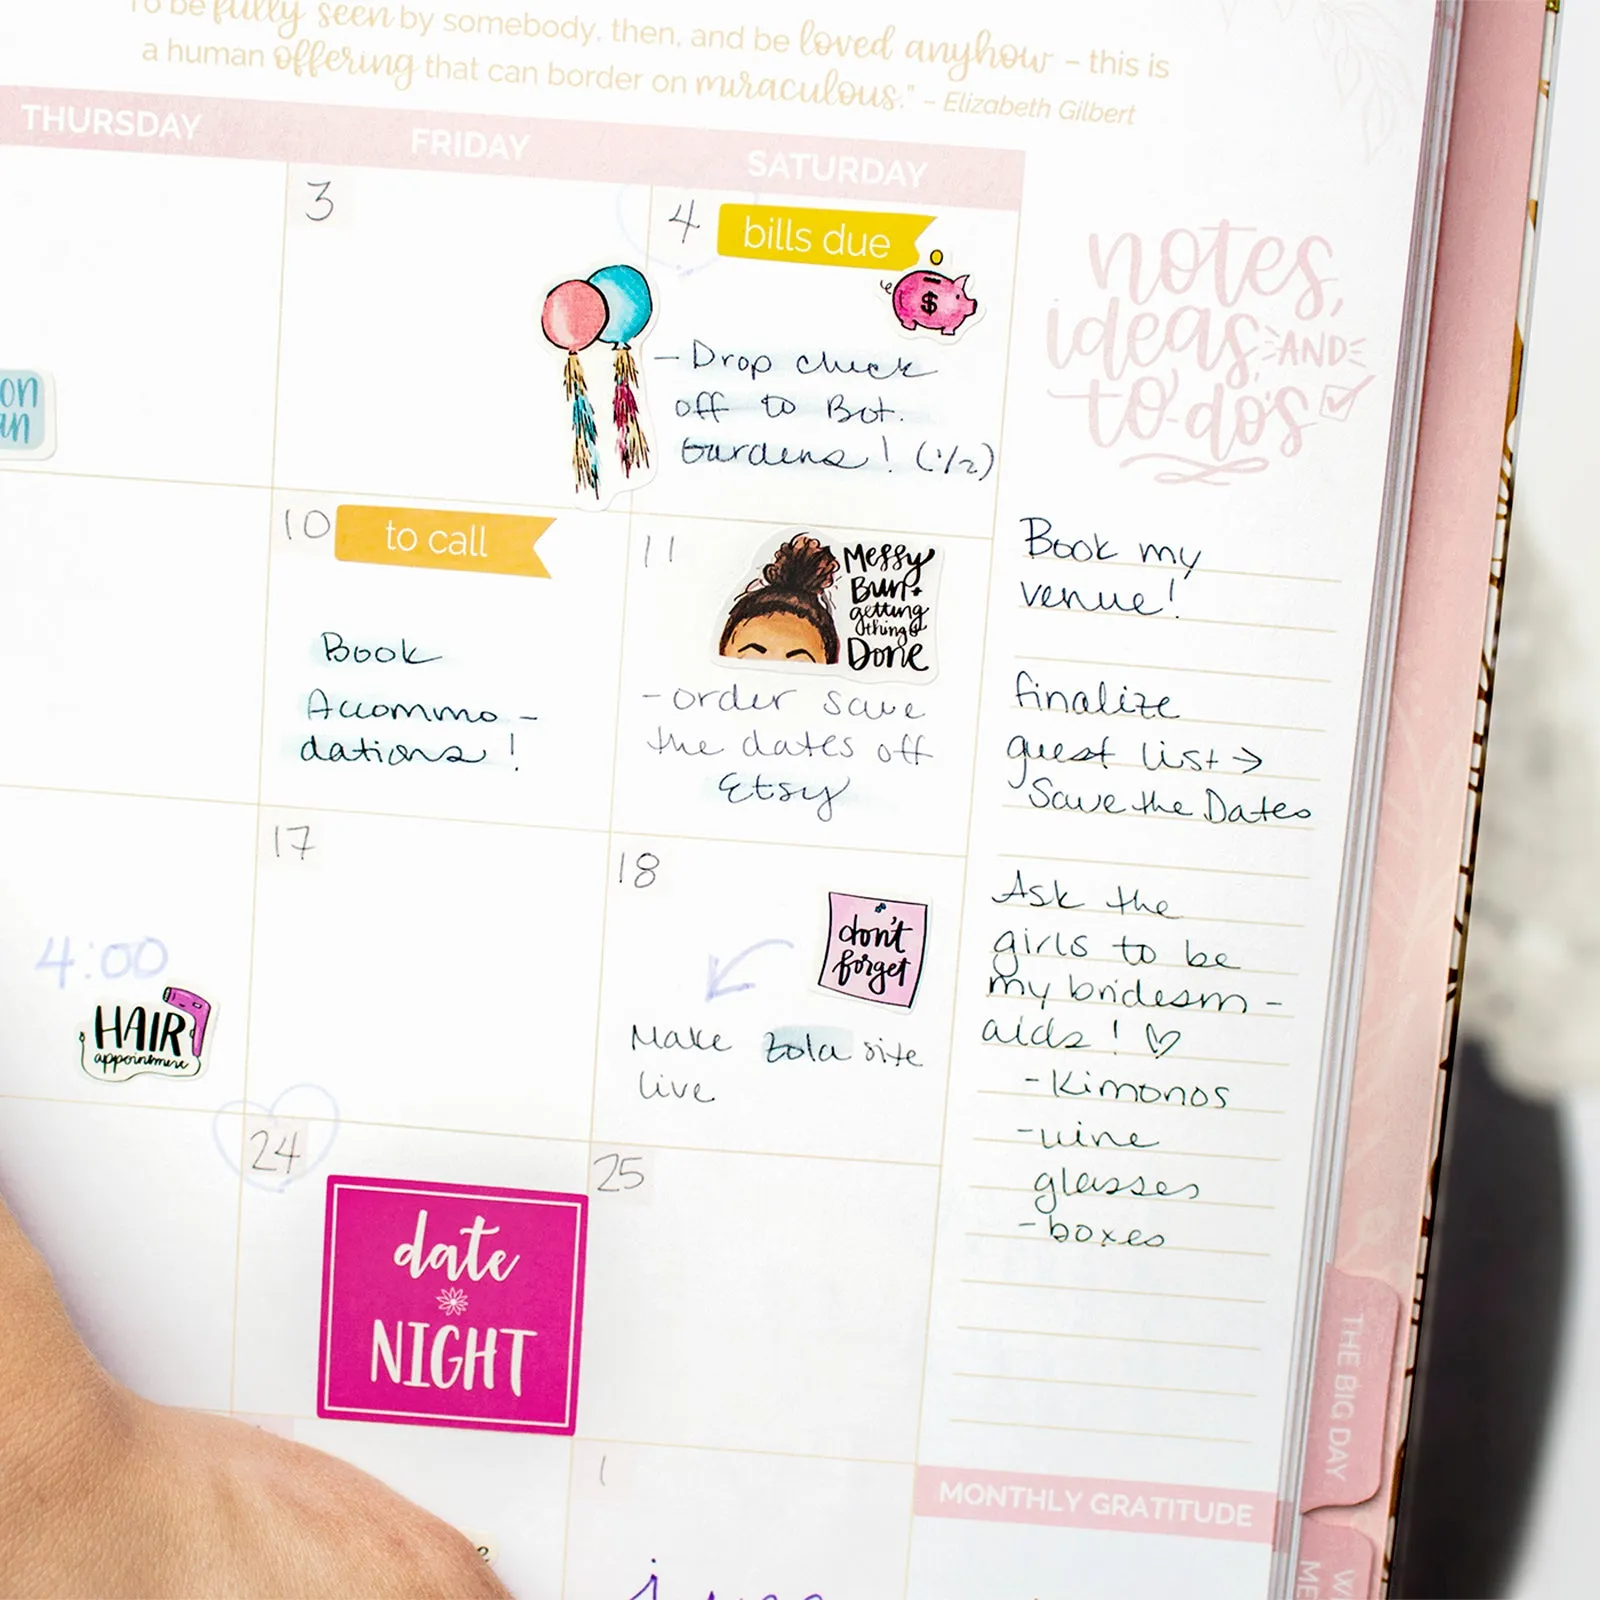 To be fully seen by somebody, then, and be loved anyhow – this is
a human offering that can border on miraculous." – Elizabeth Gilbert
THURSDAY
FRIDAY
SATURDAY
3
4
bills due
$
- Drop check
off to Bot.
Gardens! (1/2)
on
an
10
to call
Book
Accommo-
dations!
11
Messy
Bun +
getting
things
Done
- order save
the dates off
Etsy
17
18
4:00
HAIR
appointment
don't
forget
Make Zola site
live
24
date
NIGHT
25
1
notes,
ideas, AND
to-do's
Book my
venue!
finalize
guest list →
Save the Dates
Ask the
girls to be
my bridesm-
aids! ♡
- Kimonos
- wine
glasses
- boxes
MONTHLY GRATITUDE
THE BIG DAY